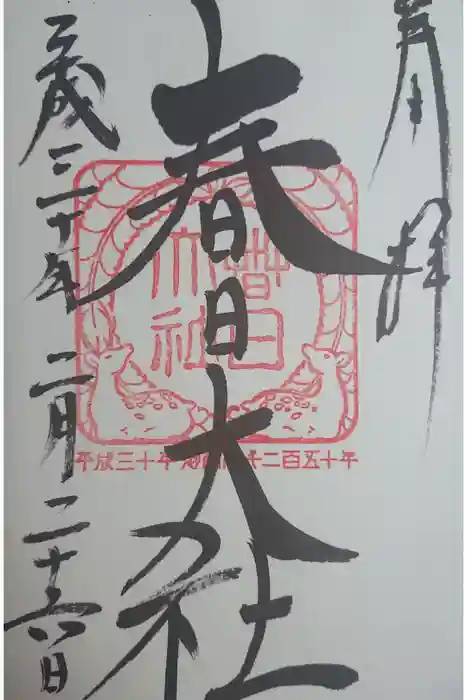 奉拝
春日大社
平成三十年 二月二十六日
春日
大社
平成三十年 二百五十年